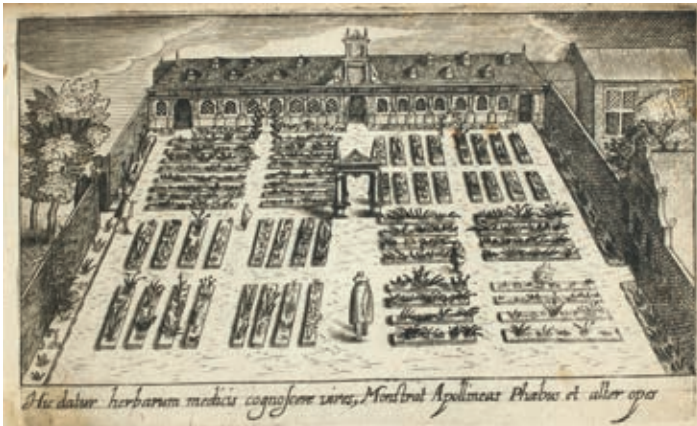 Hic datur herbarum medicis cognoſcere vires, Monſtrat Apollineas Phœbus et alter opes